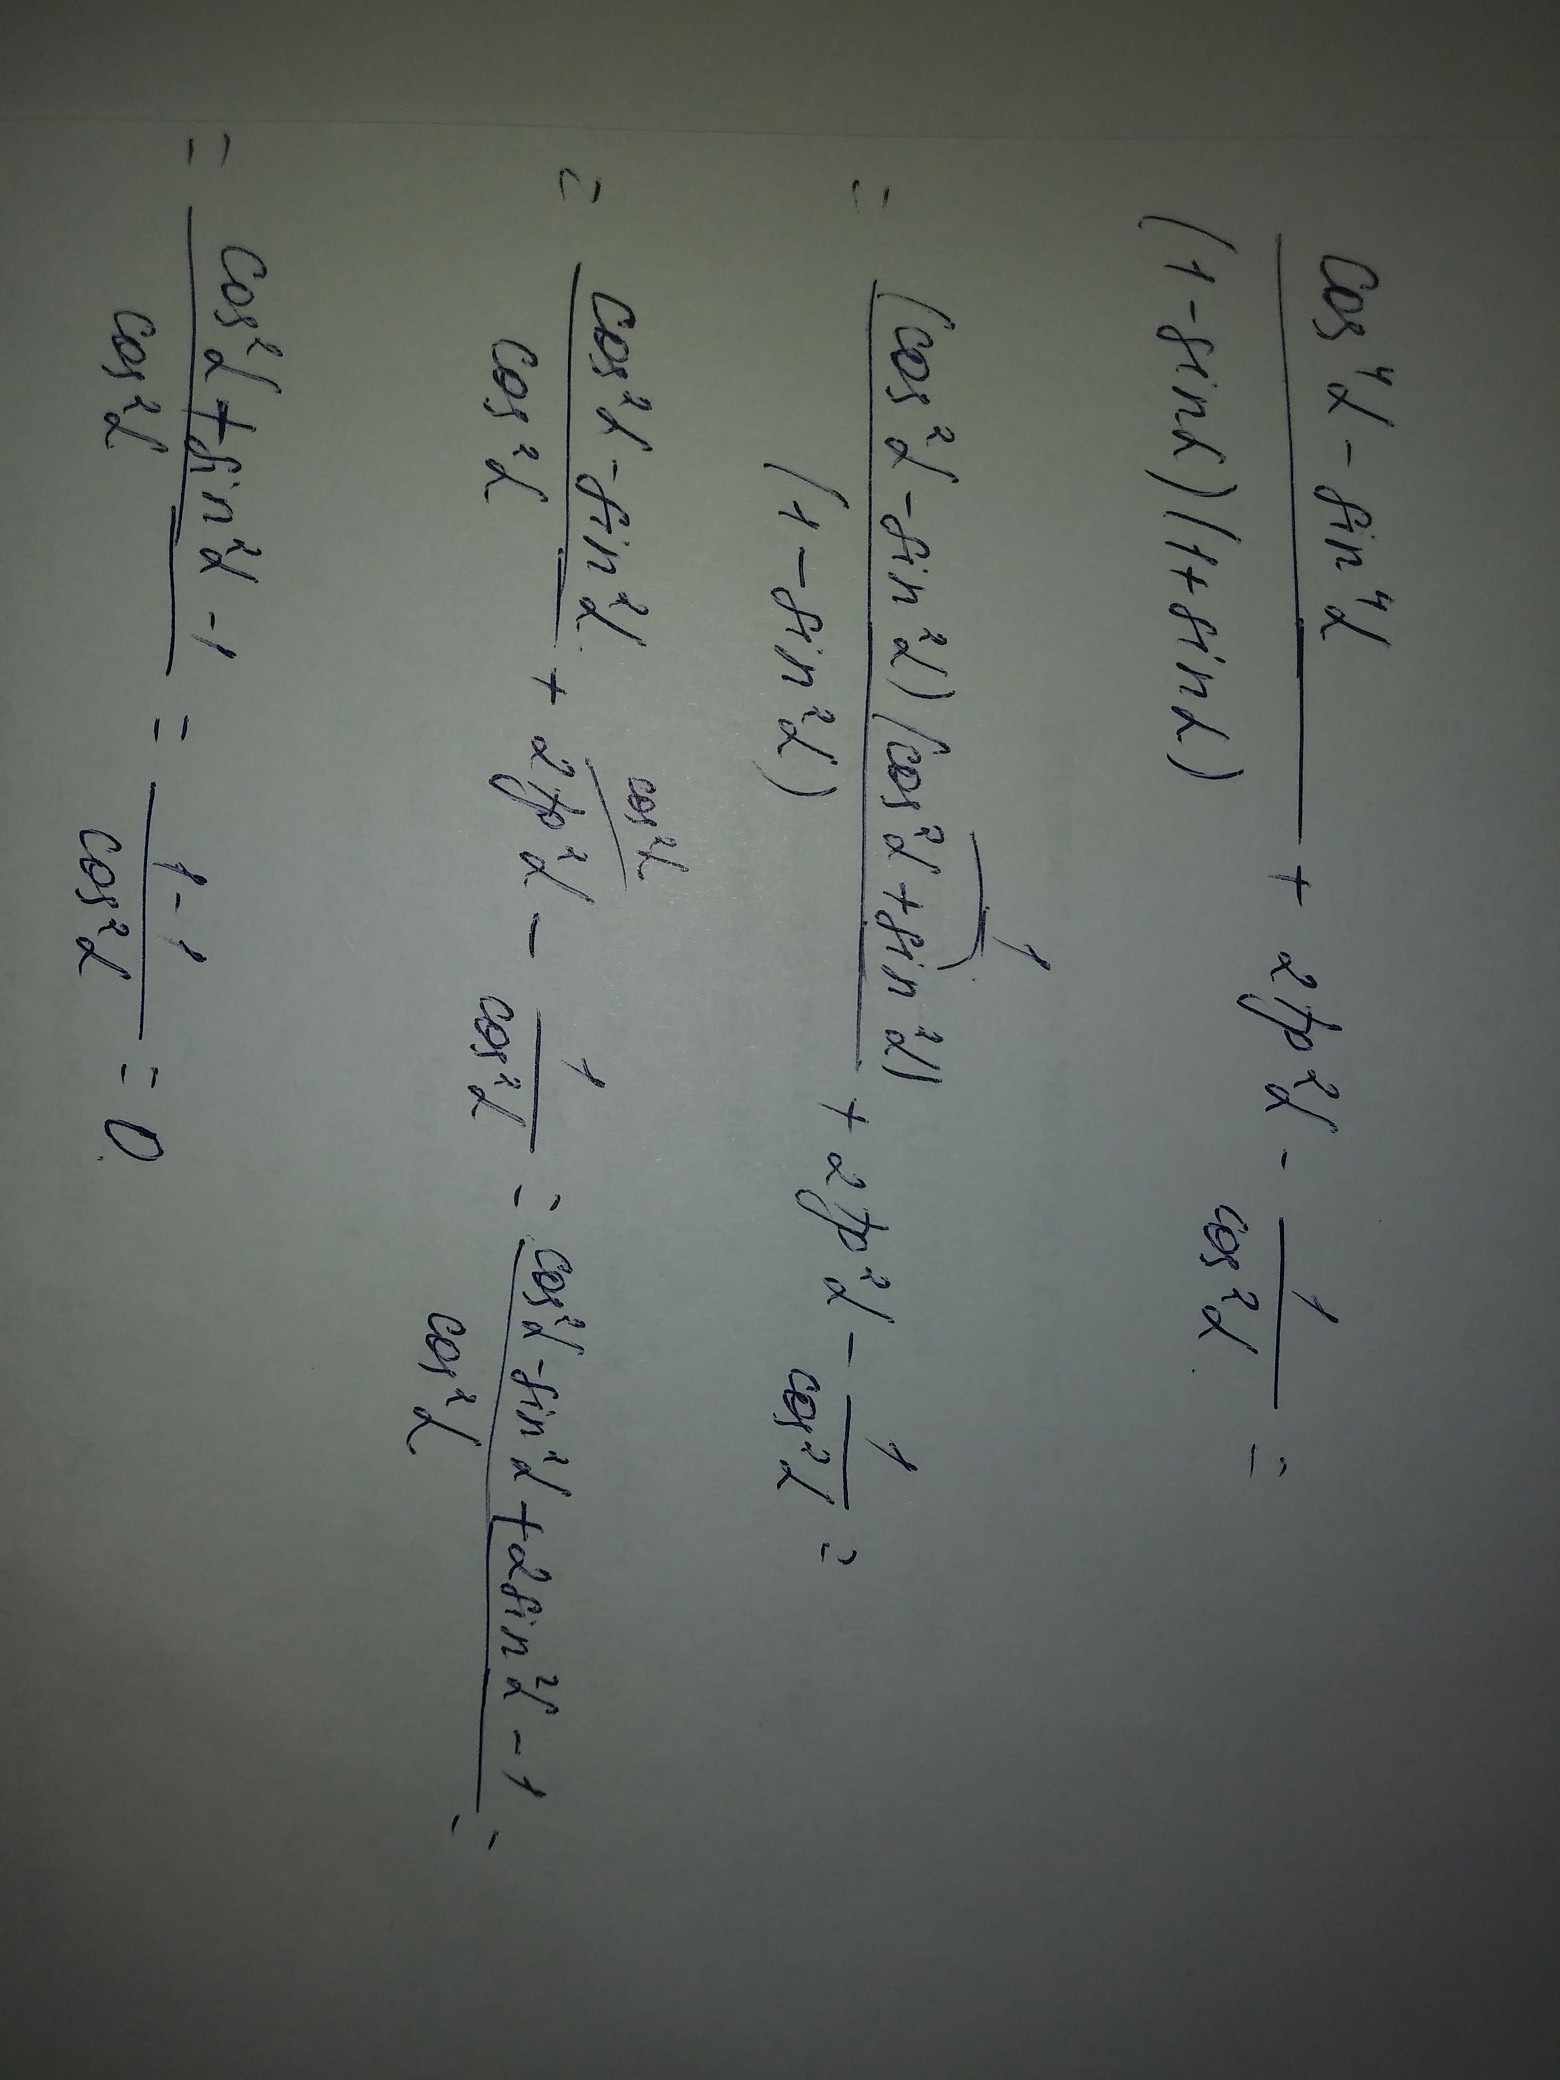 (cos⁴α - sin⁴α)/((1 - sinα)(1 + sinα)) + 2tg²α - 1/cos²α =
= ((cos²α - sin²α)(cos²α + sin²α))/(1 - sin²α) + 2tg²α - 1/cos²α =
1
= (cos²α - sin²α)/cos²α + 2tg²α - 1/cos²α = (cos²α - sin²α + 2sin²α - 1)/cos²α =
cos²α
= (cos²α + sin²α - 1)/cos²α = (1 - 1)/cos²α = 0